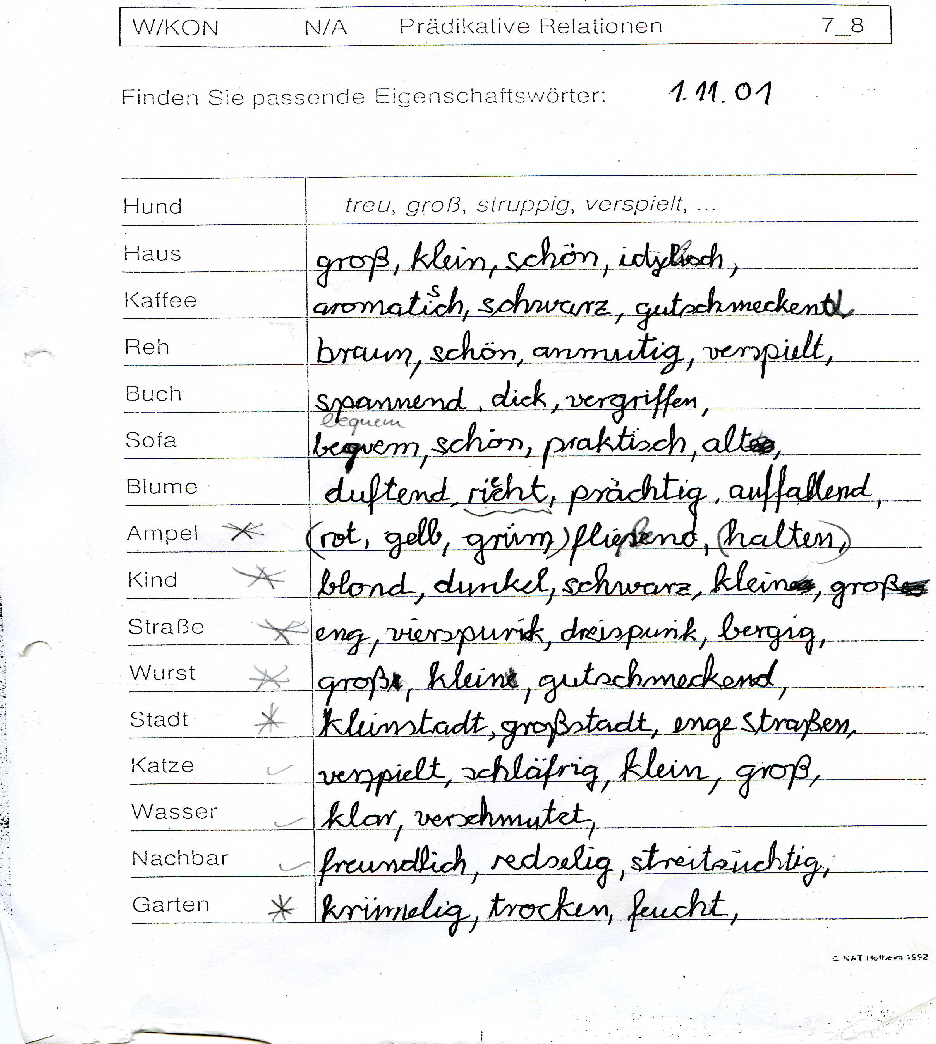 W/KON N/A Prädikative Relationen 7_8
Finden Sie passende Eigenschaftswörter: 1.11.01
Hund treu, groß, struppig, verspielt, ...
Haus groß, klein, schön, idylisch,
Kaffee aromatisch, schwarz, gutschmeckend,
Reh braun, schön, anmutig, verspielt,
Buch spannend, dick, vergriffen,
bequem
Sofa bequem, schön, praktisch, alt,
Blume duftend, richt, prächtig, auffallend,
Ampel (rot, gelb, grün) fließend, (halten,)
Kind blond, dunkel, schwarz, klein, groß
Straße eng, vierspurik, dreispurik, bergig,
Wurst groß, klein, gutschmeckend,
Stadt kleinstadt, großstadt, enge Straßen,
Katze verspielt, schläfrig, klein, groß,
Wasser klar, verschmutet,
Nachbar freundlich, redselig, streitsüchtig,
Garten krümelig, trocken, feucht,
© NAT Hofheim 1992